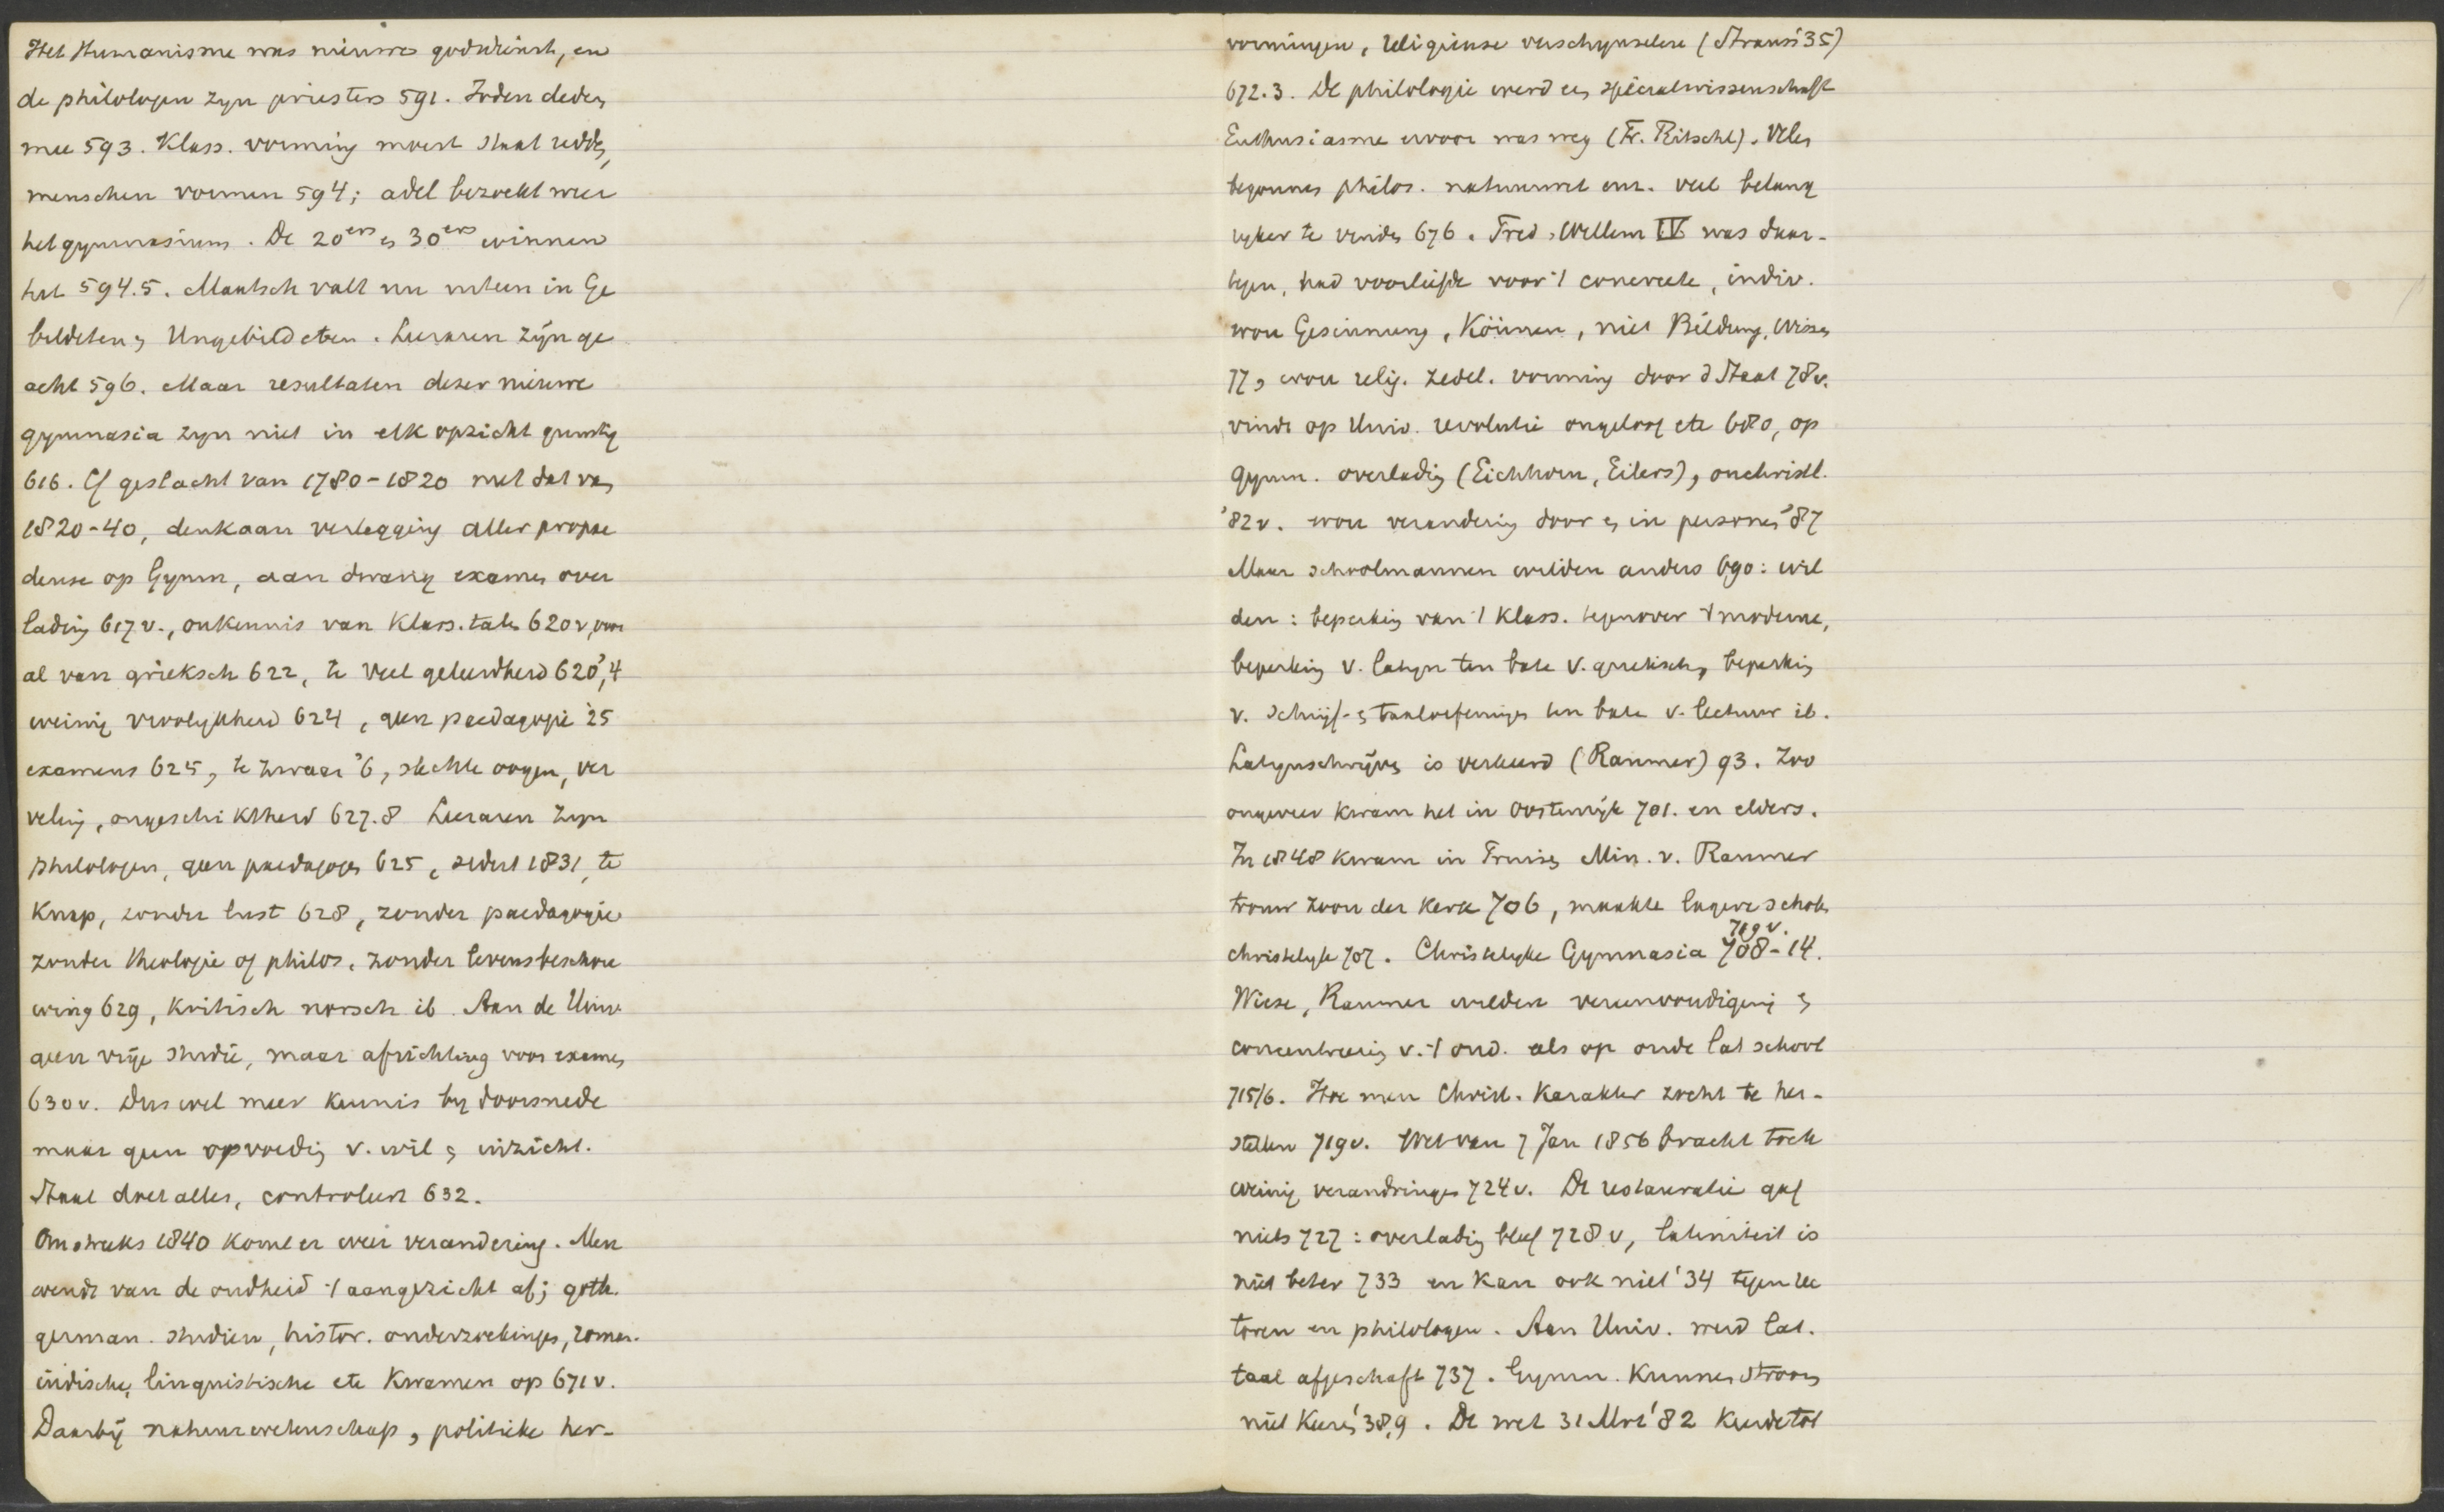 Het Humanisme was nieuwe godsdienst, en
de philologen zyn priesters 591. Joden deden
mee 593. Klass. vorming moest staat redden,
menschen vormen 594; adel bezoekt weer
het gymnasium. De 20ers en 30ers winnen
het 594.5. Maatsch valt nu uiteen in Ge
bildeten en Ungebildeten. Leeraren zijn ge
acht 596. Maar resultaten dezer nieuwe
gymnasia zyn niet in elk opzicht gunstig
616. Cf geslacht van 1780-1820 met dat van
1820-40, denk aan verlegging aller propae
deuse op Gymn, aan dwang examen over
lading 617 v., onkennis van Klass. talen 620 v, voor
al van grieksch 622, te veel geleerdheid 620, '4
weinig vroolykheid 624, geen paedagogie '25
examens 625, te zwaar '6, slechte oogen, ver
veling, ongeschiktheid 627.8 Leeraren zyn
philologen, geen paedagogen 625, sedert 1831, te
knap, zonder lust 628, zonder paedagogie
zonder theologie of philos. zonder levensbeschou
wing 629, kritisch norsch ib. Aan de Univ.
geen vrije studie, maar africhting voor examen
630 v. Dus wel meer kennis by doorsnede
maar geen opvoeding v. wil en inzicht.
Staat doet alles, controleert 632.
Omstreeks 1840 komt er weer verandering. Men
wendt van de oudheid 't aangezicht af; goth.
german. studien, histor. onderzoekingen, roman.
indische, linguistische etc kwamen op 671 v.
Daarbij natuurwetenschap, politieke her-
vormingen, religieuse verschynselen (Strauss '35)
672.3. De philologie werd een specialwissenschaft
Enthusiasme ervoor was weg (Fr. Ritschl). Velen
begonnen philos. natuurwet enz. veel belang
ryker te vinden 676. Fred. Willem IV was daar-
tegen, had voorliefde voor 't concrete, indiv.
wou Gesinnung, Können, niet Bildung, Wissen
77, wou relig. zedel. vorming door d Staat 78 v.
vindt op Univ. revolutie ongeloof etc 680, op
Gymn. overlading (Eichhorn, Eilers), onchristl.
'82 v. wou verandering door en in personen '87
Maar schoolmannen wilden anders 690: wil
den: beperking van 't klass. tegenover 't moderne,
beperking v. latyn ten bate v. grieksch, beperking
v. schrijf- en taaloefeningen ten bate v. lectuur ib.
Latynschrijven is verkeerd (Raumer) 93. Zoo
ongeveer kwam het in Oostenrijk 701. en elders.
In 1848 kwam in Pruisen Min. v. Raumer
trouw zoon der kerk 706, maakte lagere scholen
christelyk 707. Christelyke Gymnasia 708-14. 719 v.
Wiese, Raumer wilden vereenvoudiging en
concentreering v. 't ond. als op oude lat school
715/6. Hoe men Christ. karakter zocht te her-
stellen 719 v. Wet van 7 Jan 1856 bracht toch
weinig veranderingen 724 v. De restauratie gaf
niets 727: overlading bleef 728 v, latiniteit is
niet beter 733 en kan ook niet '34 tegen lec
toren en philologen. Aan Univ. werd lat.
taal afgeschaft 737. Gymn. kunnen stroom
niet keeren '38,9. De wet 31 Mrt '82 keerde tot